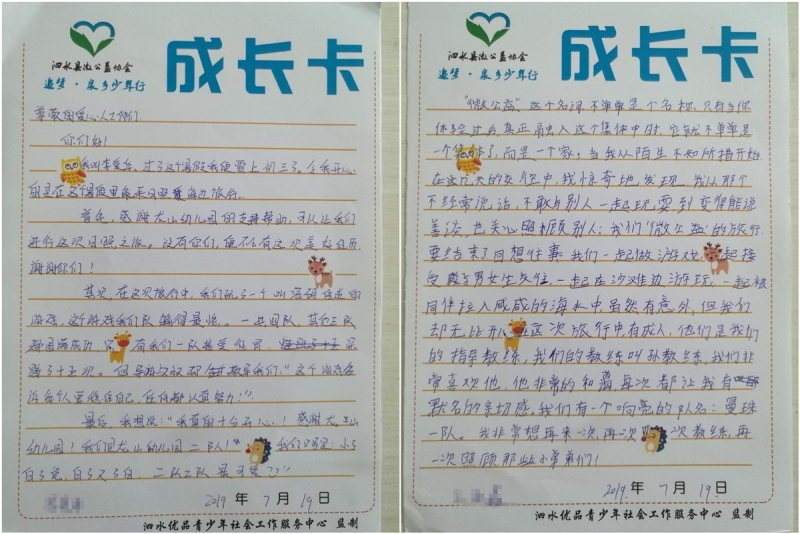 泗水县微公益协会
追梦·泉乡少年行
成长卡
尊敬的爱心人士们
你们好!
过了这个暑假我便要上初三了。令我开心
的是在这个假里能来日照 海边旅行。
首先,感谢龙山幼儿园的支持帮助,可以让我们
进行这次日照之旅。没有你们,便不会有这次美好经历
谢谢你们!
其次,在这次旅行中,我们玩了一个叫
游戏,这个游戏我们队输得最惨。一共四队,其他三队
都圆满成功,只 有我们一队接受惩罚
深蹲了十五次。但 这个游戏告
诉每个人要相信自己,任何都认真努力!”
最后,我想说:“我真的十分开心!感谢龙山
幼儿园!我们是龙山幼儿园二队!” 我们口号是:小
白了兔,白又白,二队2队最可爱
2019年7月19日
泗水优品青少年社会工作服务中心 监制
泗水县微公益协会
追梦·泉乡少年行
成长卡
“微公益”这个名词不单单是个名称,只有当你
体验过后真正融入这个集体中时,它就不单单是
一个集体了,而是一个家。当我从陌生不知所措开始
在这几天的交往中,我惊奇地发现,我从那个
不经常说话,不敢与别人一起玩,耍到变得能说
善谈,也关心照顾别人;我们“微公益”的旅行
要结束了回想往事我们一起做游戏,一起接
受戴 男女生交往,一起在沙滩边游玩,一起被
同伴拉入咸咸的海水中虽然有意外,但我们
却无比开 这次旅行中有成人,他们是我们
的指导教练,我们的教练叫孙教练,我们非
常喜欢他,他非常的和蔼再次都让我有
默名的亲切感,我们有一个响亮的队名:曼珠
一队。我非常想再来一次,再次 次教练,再
一次照顾那些小弟弟们!
2019年7月19日
泗水优品青少年社会工作服务中心 监制